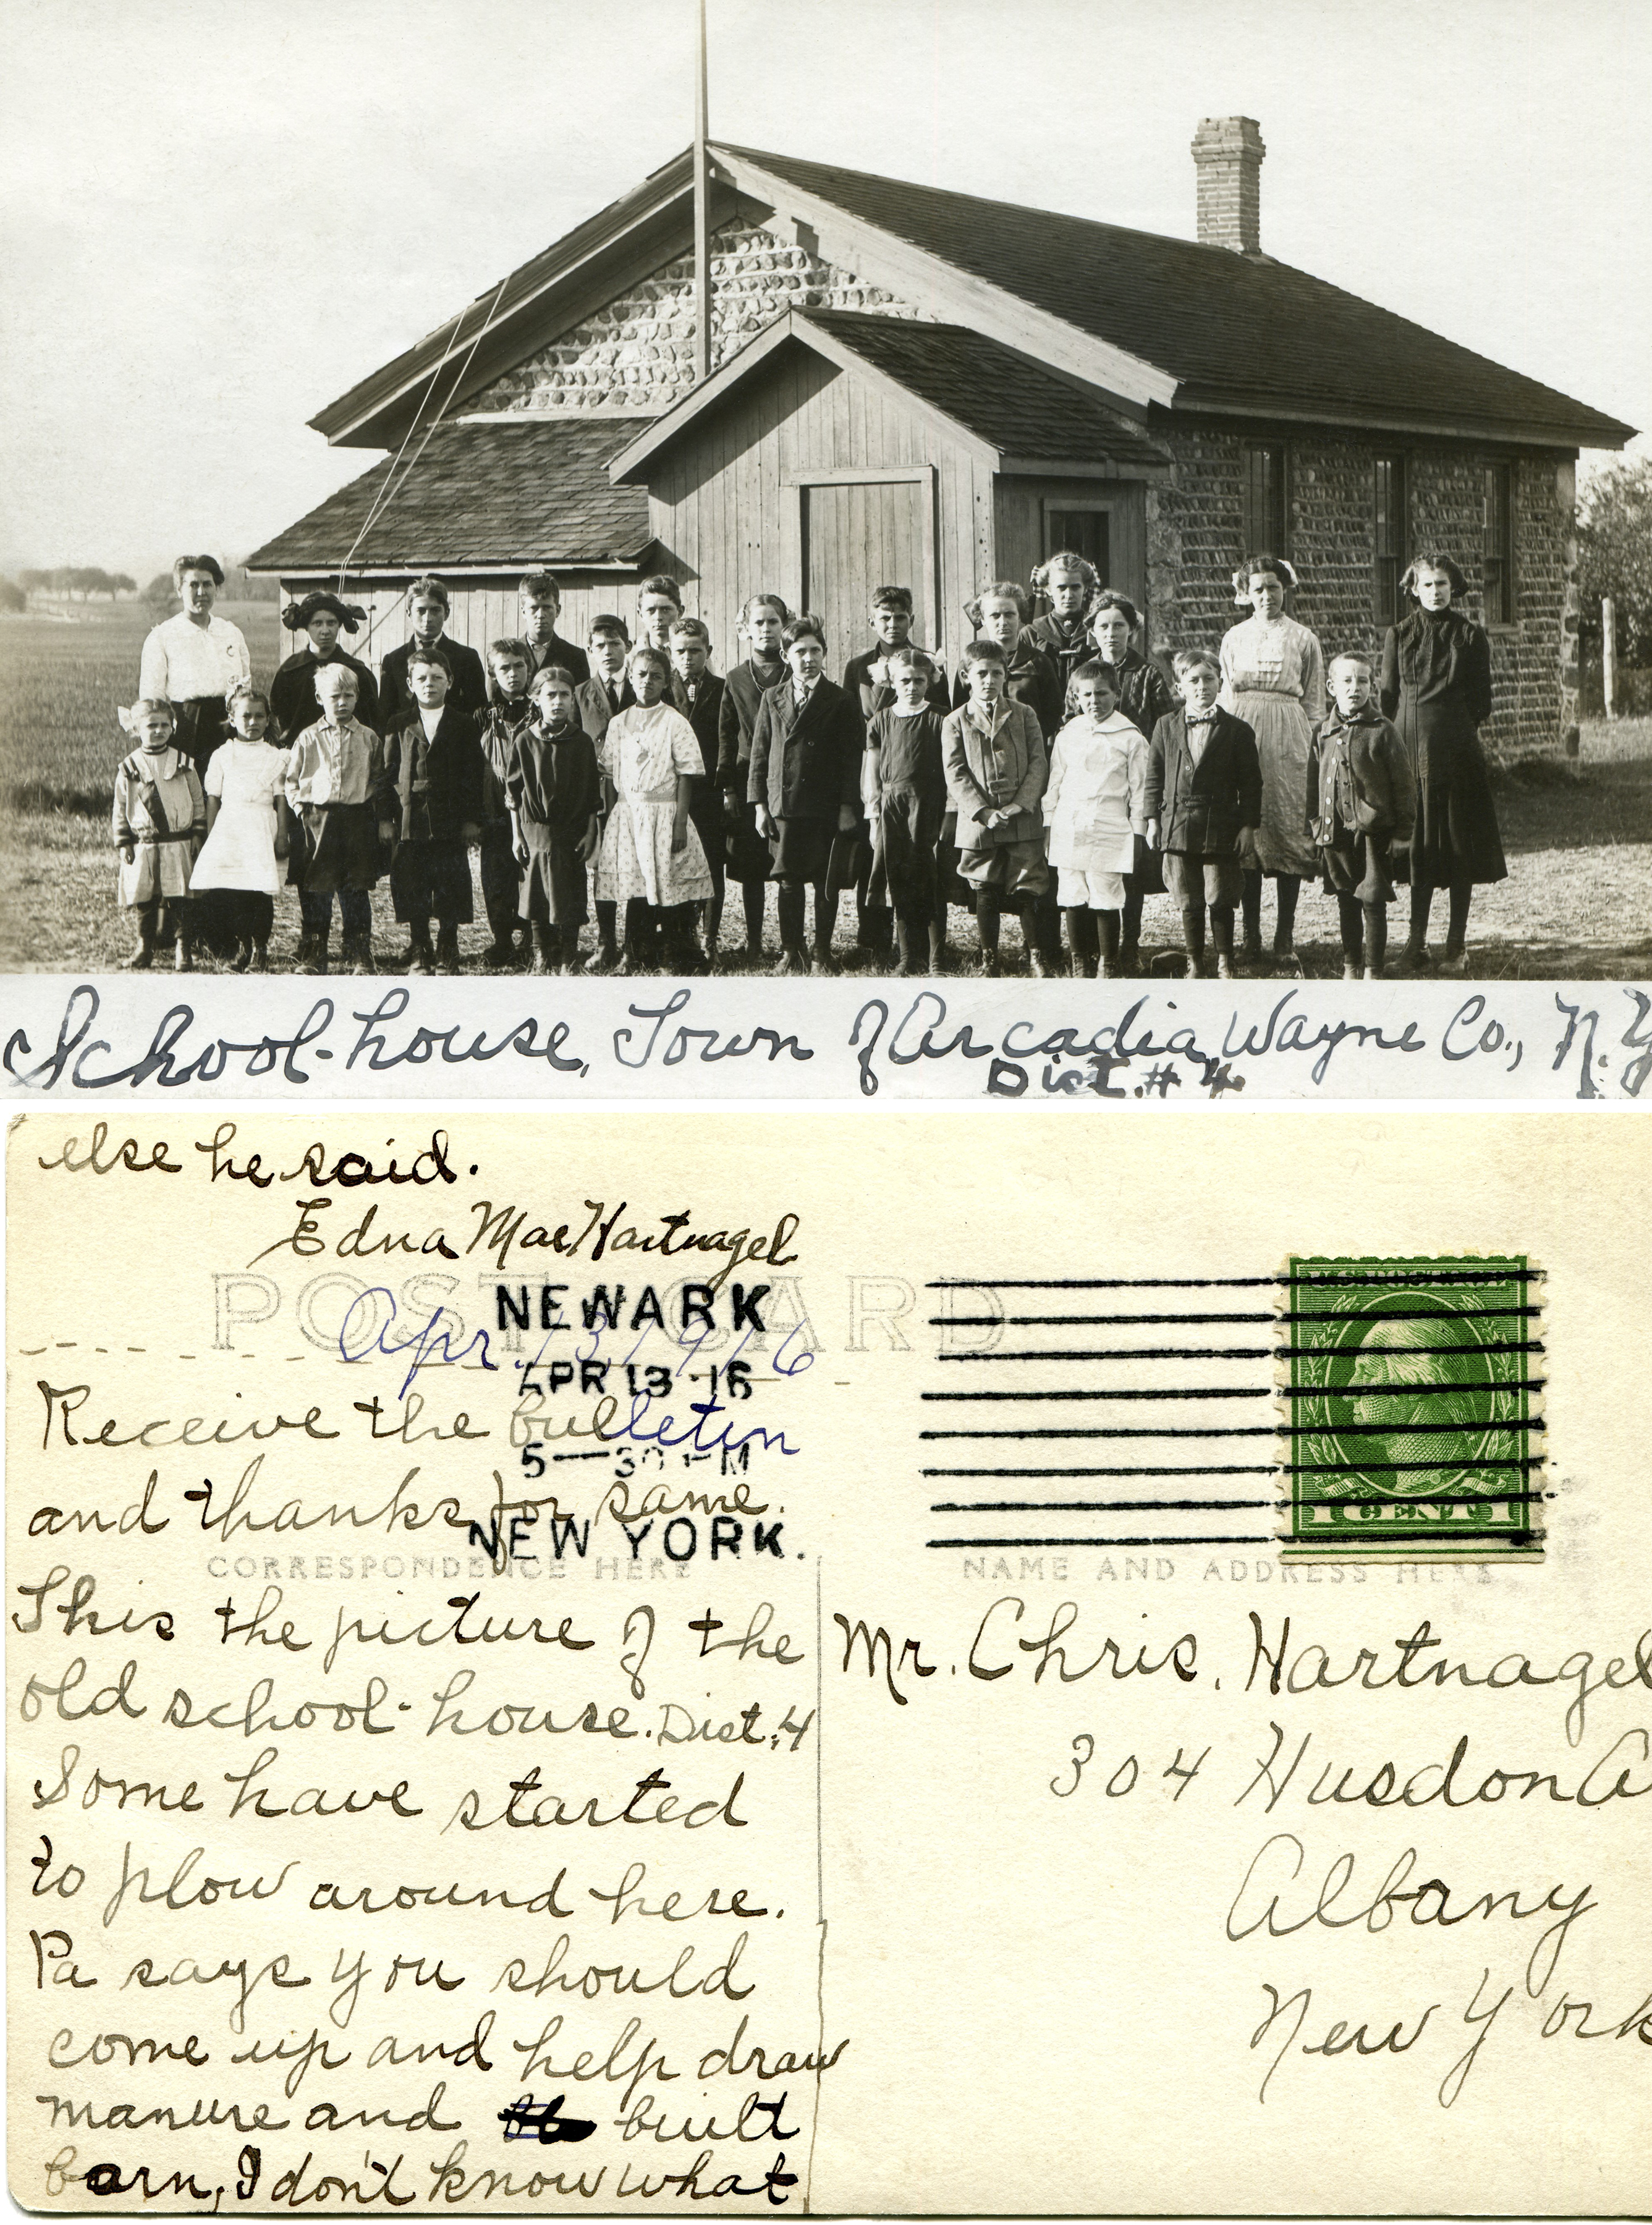 School-house, Town of Arcadia, Wayne Co., N.Y
Dist. # 4
else he said.
Edna Mae Hartnagel
POST CARD
NEWARK
Apr. 13, 1916
APR 13 -16
Receive the bulletin
5—30 PM
and thanks for same.
NEW YORK.
CORRESPONDENCE HERE
NAME AND ADDRESS HERE
1 CENT 1
This the picture of the
old school-house. Dist. 4
Some have started
to plow around here.
Pa says you should
come up and help draw
manure and built
barn, I don't know what
Mr. Chris. Hartnagel
304 Husdon A
Albany
New York